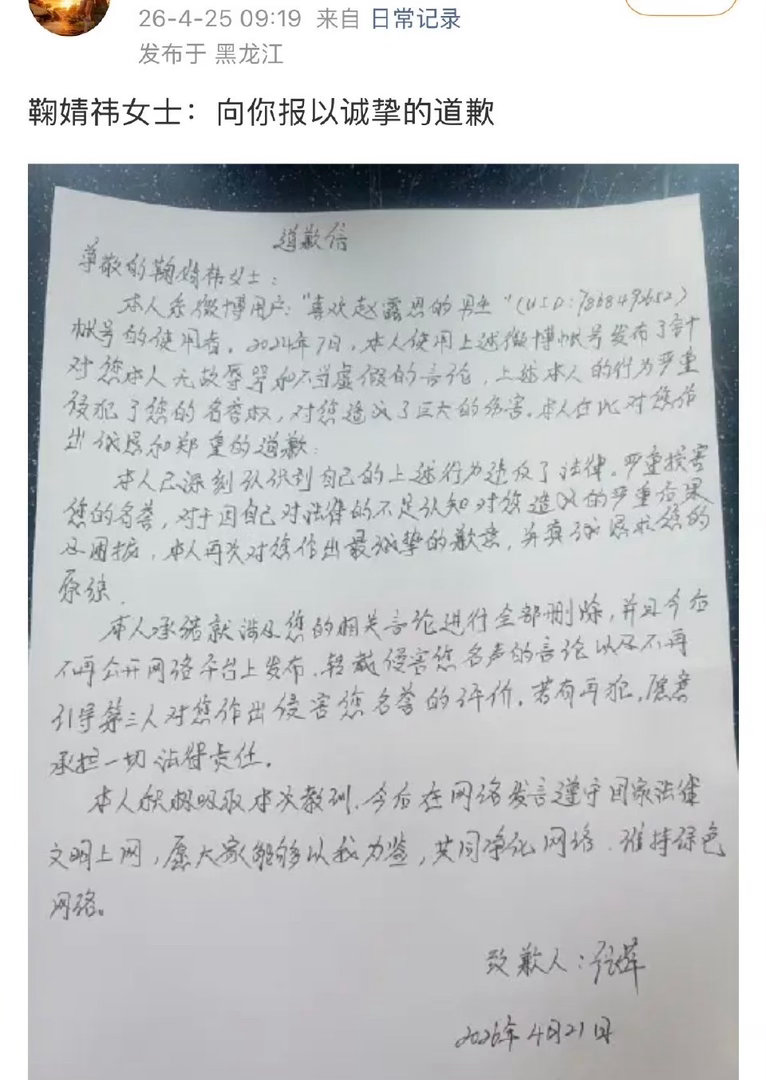 26-4-25 09:19 来自 日常记录
发布于 黑龙江
鞠婧祎女士：向你报以诚挚的道歉
道歉信
尊敬的鞠婧祎女士：
本人系微博用户："喜欢赵露思的男生"(UID:7868492652)
帐号的使用者。2024年7日，本人使用上述微博帐号发布了针
对您本人无故辱骂和不当虚假的言论，上述本人的行为严重
侵犯了您的名誉权，对您造成了巨大的伤害。本人在此对您作
出诚恳和郑重的道歉：
本人已深刻认识到自己的上述行为违反了法律。严重损害
您的名誉，对于因自己对法律的不足认知对您造成的严重后果
及困扰，本人再次对您作出最诚挚的歉意，并真诚恳求您的
原谅.
本人承诺就涉及您的相关言论进行全部删除，并且今后
不再公开网络平台上发布、转载侵害您名声的言论以及不再
引导第三人对您作出侵害您名誉的评价。若有再犯，愿意
承担一切法律责任。
本人积极吸取本次教训.今后在网络发言遵守国家法律
文明上网，愿大家能够以我为鉴，共同净化网络、维持绿色
网络。
致歉人：
2026年4月21日